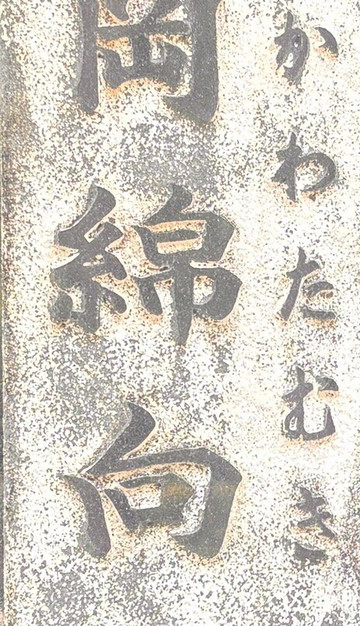 かわたむき
岡綿向